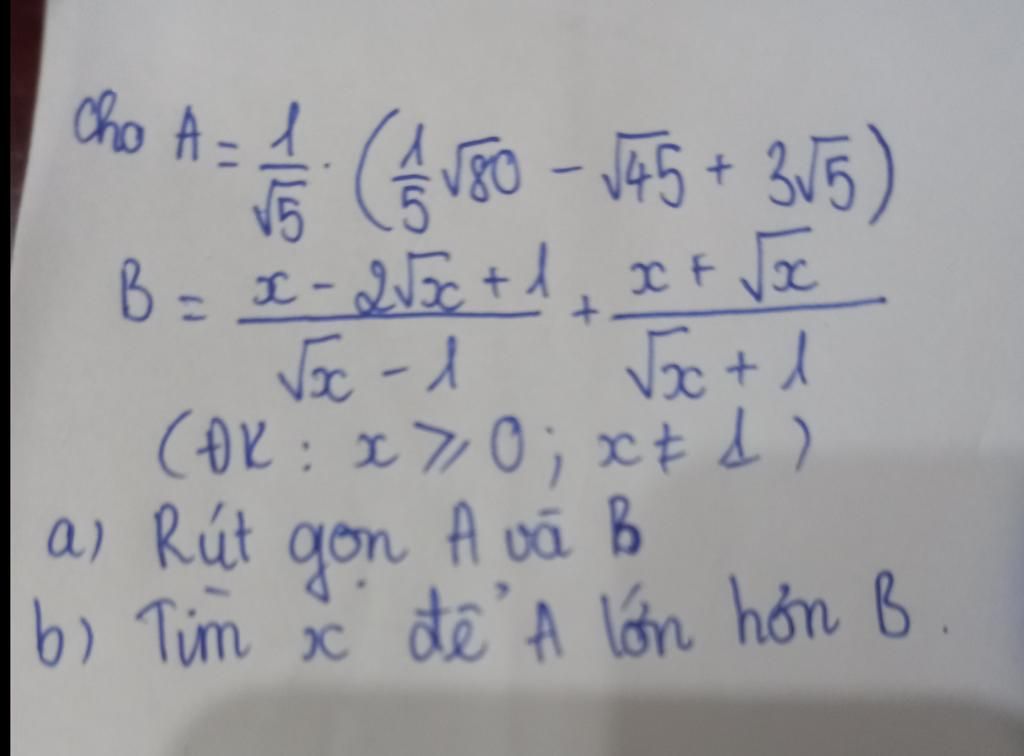 Cho A = 1/√5 . (1/5 √80 - √45 + 3√5)
B = (x - 2√x + 1)/(√x - 1) + (x + √x)/(√x + 1)
(ĐK : x ⩾ 0 ; x ≠ 1)
a) Rút gọn A và B
b) Tìm x để A lớn hơn B .